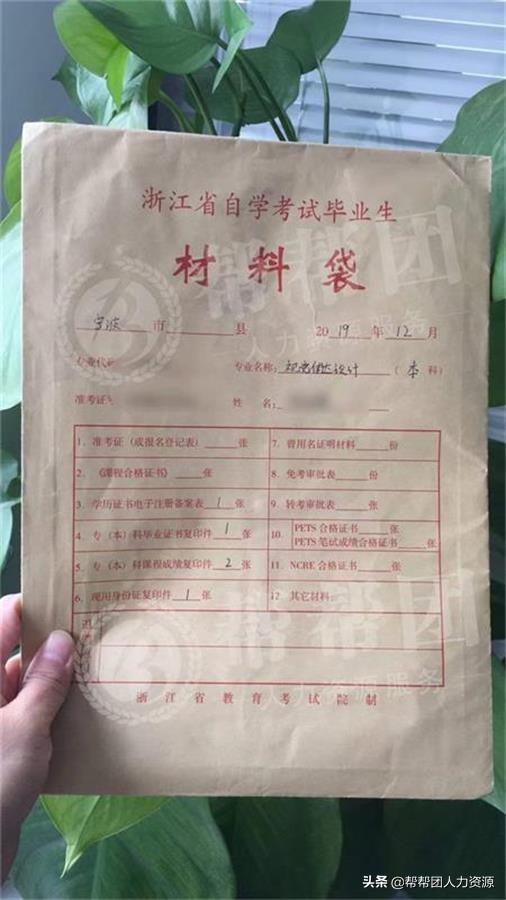 浙江省自学考试毕业生
材料袋
宁波 市 县 2019 年 12 月
专业代码 专业名称: 视觉传达设计 (本科)
准考证 姓名:
1. 准考证(或报名登记表) 张 7. 曾用名证明材料 份
2. 《课程合格证书》 张 8. 免考审批表 份
3. 学历证书电子注册备案表 1 张 9. 转考审批表 张
4. 专(本)科毕业证书复印件 1 张 10. PETS 合格证书 张
PETS 笔试成绩合格证书 张
5. 专(本)科课程成绩复印件 2 张 11. NCRE 合格证书 张
6. 现用身份证复印件 1 张 12 其它材料:
浙江省教育考试院制
帮帮团
人力资源服务
帮帮团
人力资源服务
头条 @帮帮团人力资源